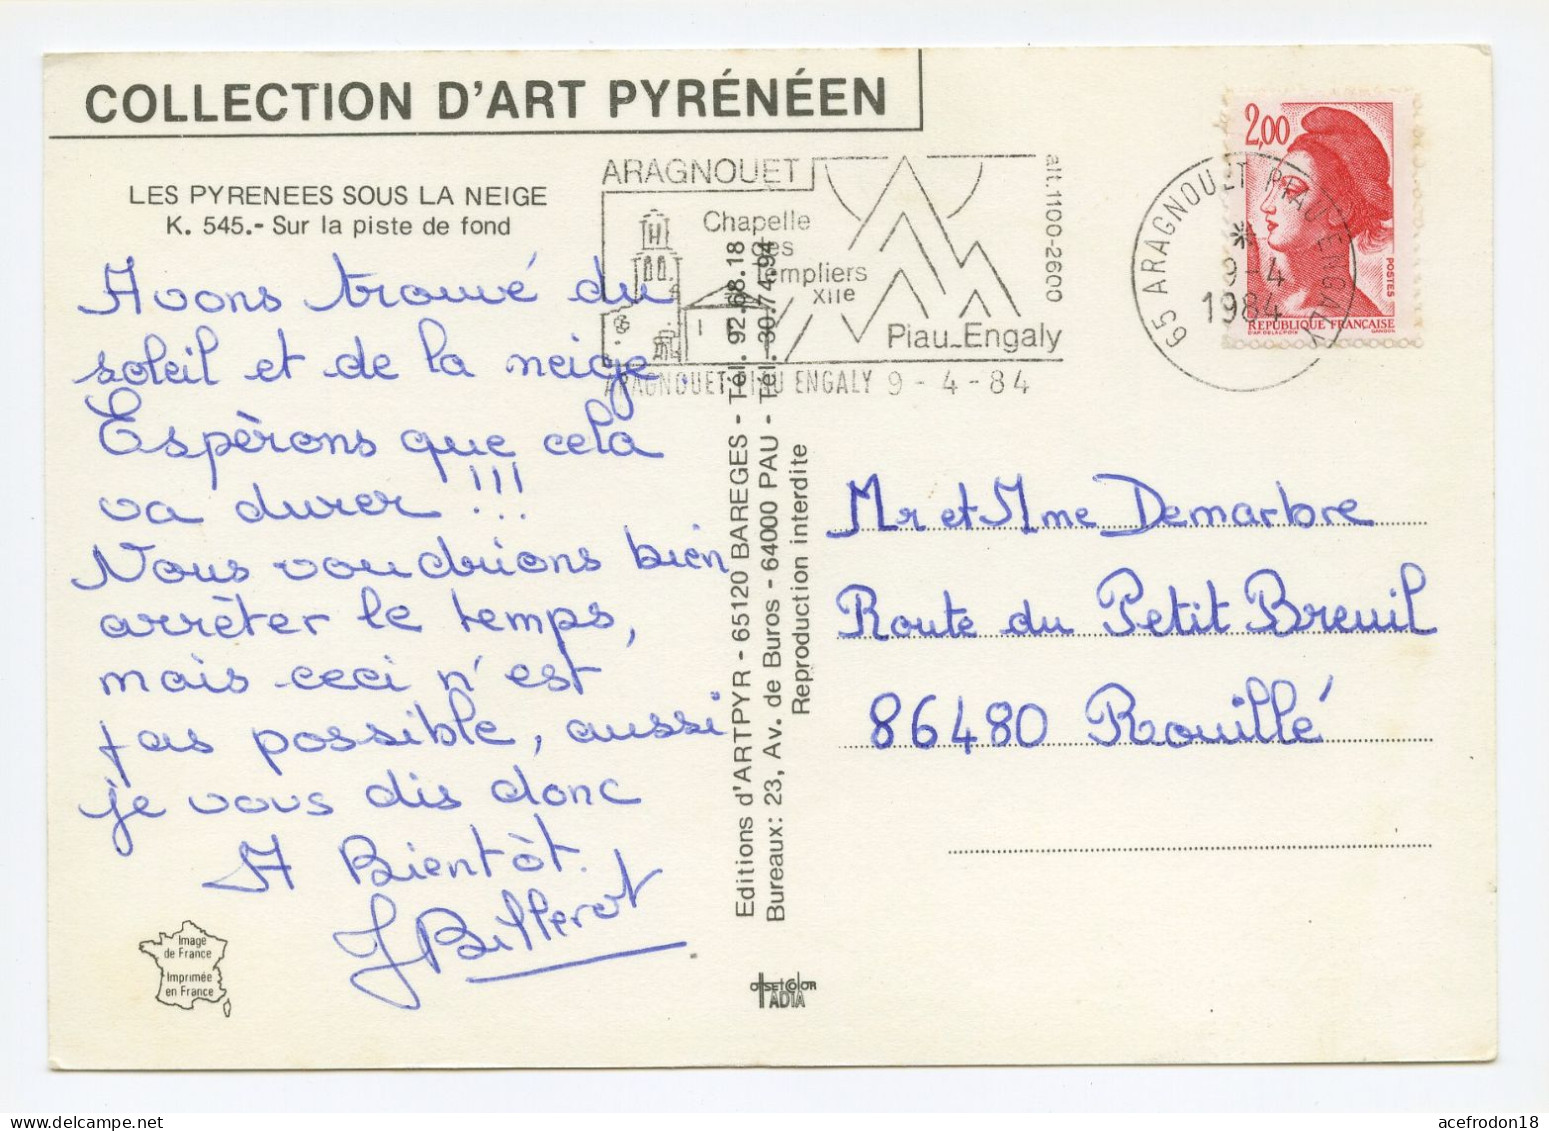 COLLECTION D'ART PYRÉNÉEN
LES PYRENEES SOUS LA NEIGE
K. 545.- Sur la piste de fond
Avons trouvé du
soleil et de la neige.
Espèrons que cela
va durer !!!
Nous voudrions bien
arrêter le temps,
mais ceci n'est
pas possible, aussi
je vous dis donc
A Bientôt.
JBillerot
Image
de France
Imprimée
en France
ARAGNOUET
Chapelle
des
Templiers
XIIe
Piau-Engaly
alt.1100-2600
ARAGNOUET PIAU ENGALY 9 - 4 - 84
Editions d'ARTPYR - 65120 BAREGES - Tél. 92.68.18
Bureaux: 23, Av. de Buros - 64000 PAU - Tél. 30.74.94
Reproduction interdite
OffSETCOlOR
IADIA
2,00
POSTES
RÉPUBLIQUE FRANÇAISE
D'AP. DELACROIX GANDON
65 ARAGNOUET PIAU ENGALY
9-4
1984
Mr et Mme Demarbre
Route du Petit Breuil
86480 Rouillé
acefrodon18